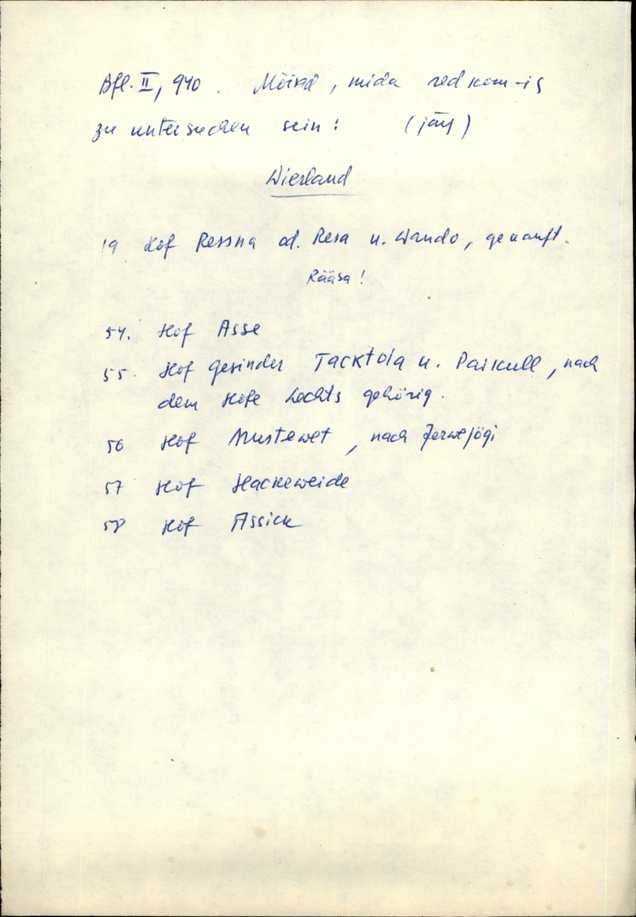 Bfl. II, 940. Mõisad, mida red kom-is
zu untersuchen sein: (järg)
Wierland
19 Hof Ressna od. Resa u. Wando, genannt.
Rääsa!
54. Hof Asse
55. Hof gesinder Tacktola u. Paikull, nach
dem Hofe Lechts gehörig.
56 Hof Mustewet, nach Jerwejögi
57 Hof Hackeweide
58 Hof Assick